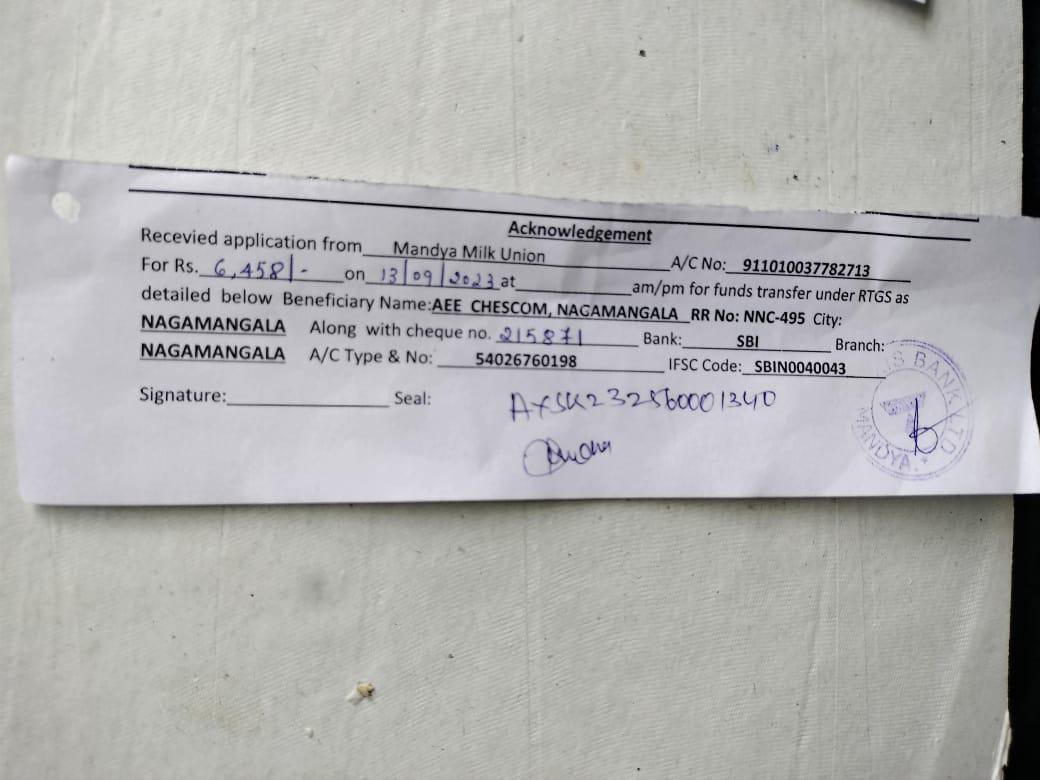 Acknowledgement
Recevied application from Mandya Milk Union A/C No: 911010037782713
For Rs. 6,458/- on 13/09/2023 at am/pm for funds transfer under RTGS as
detailed below Beneficiary Name:AEE CHESCOM, NAGAMANGALA RR No: NNC-495 City:
NAGAMANGALA Along with cheque no. 215871 Bank: SBI Branch:
NAGAMANGALA A/C Type & No: 54026760198 IFSC Code: SBIN0040043
Signature: Seal: AXSK232560001340
BANK LTD
MANDYA.